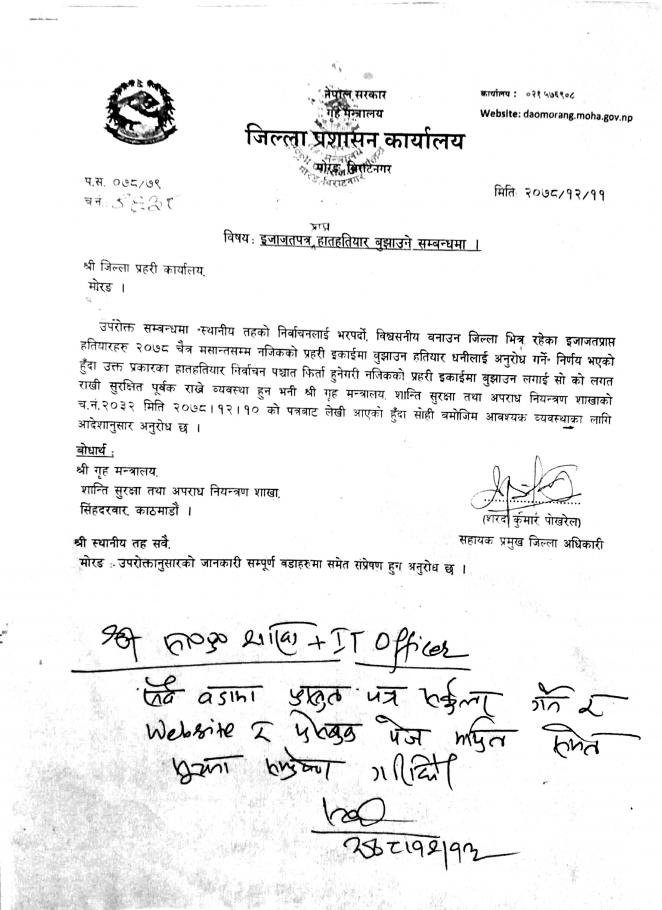 नेपाल सरकार
गृह मन्त्रालय
जिल्ला प्रशासन कार्यालय
मोरङ, बिराटनगर
कार्यालय : ०२१ ५७६९०८
Website: daomorang.moha.gov.np
प.स. ०७८/७९
च.नं.
मिति: २०७८/१२/११
प्राप्त
विषय: इजाजतपत्र हातहतियार बुझाउने सम्बन्धमा ।
श्री जिल्ला प्रहरी कार्यालय,
मोरङ ।
उपरोक्त सम्बन्धमा स्थानीय तहको निर्वाचनलाई भरपर्दो, विश्वसनीय बनाउन जिल्ला भित्र रहेका इजाजतप्राप्त
हतियारहरु २०७८ चैत्र मसान्तसम्म नजिकको प्रहरी इकाईमा बुझाउन हतियार धनीलाई अनुरोध गर्ने निर्णय भएको
हुँदा उक्त प्रकारका हातहतियार निर्वाचन पश्चात फिर्ता हुनेगरी नजिकको प्रहरी इकाईमा बुझाउन लगाई सो को लगत
राखी सुरक्षित पूर्वक राख्ने व्यवस्था हुन भनी श्री गृह मन्त्रालय, शान्ति सुरक्षा तथा अपराध नियन्त्रण शाखाको
च.नं.२०३२ मिति २०७८।१२।१० को पत्रबाट लेखी आएको हुँदा सोही बमोजिम आवश्यक व्यवस्थाका लागि
आदेशानुसार अनुरोध छ ।
बोधार्थ :
श्री गृह मन्त्रालय,
शान्ति सुरक्षा तथा अपराध नियन्त्रण शाखा,
सिंहदरवार, काठमाडौं ।
(शरद कुमार पोखरेल)
सहायक प्रमुख जिल्ला अधिकारी
श्री स्थानीय तह सबै,
मोरङ :- उपरोक्तानुसारको जानकारी सम्पूर्ण वडाहरुमा समेत संप्रेषण हुन अनुरोध छ ।
श्री शाखा + IT Officer
सबै वडामा प्रस्तुत पत्र सर्कुलर गर्ने र
Website र फेसबुक पेज मार्फत समेत
सूचना सम्प्रेषण गरिदिने
२०७८।१२।१३